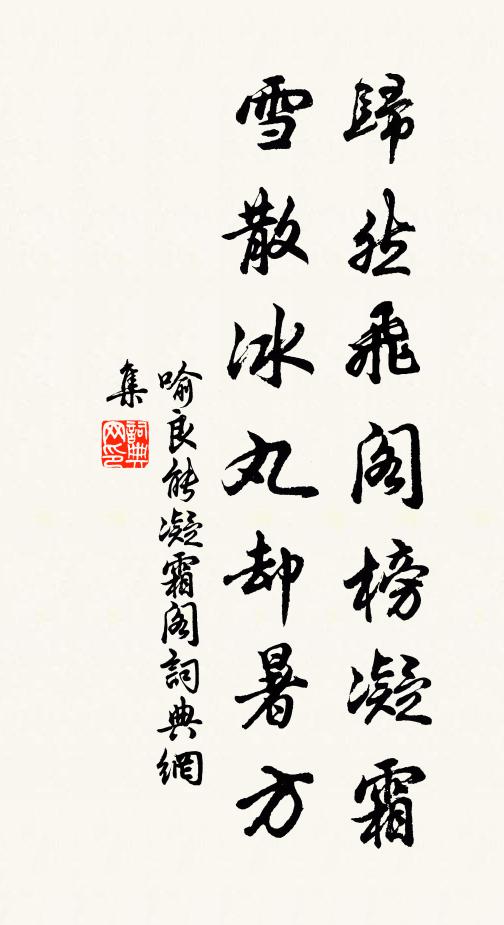 歸然飛閣榜凝霜
雪散冰丸却暑方
喻良能凝霜閣詞典網
集
詞典網印